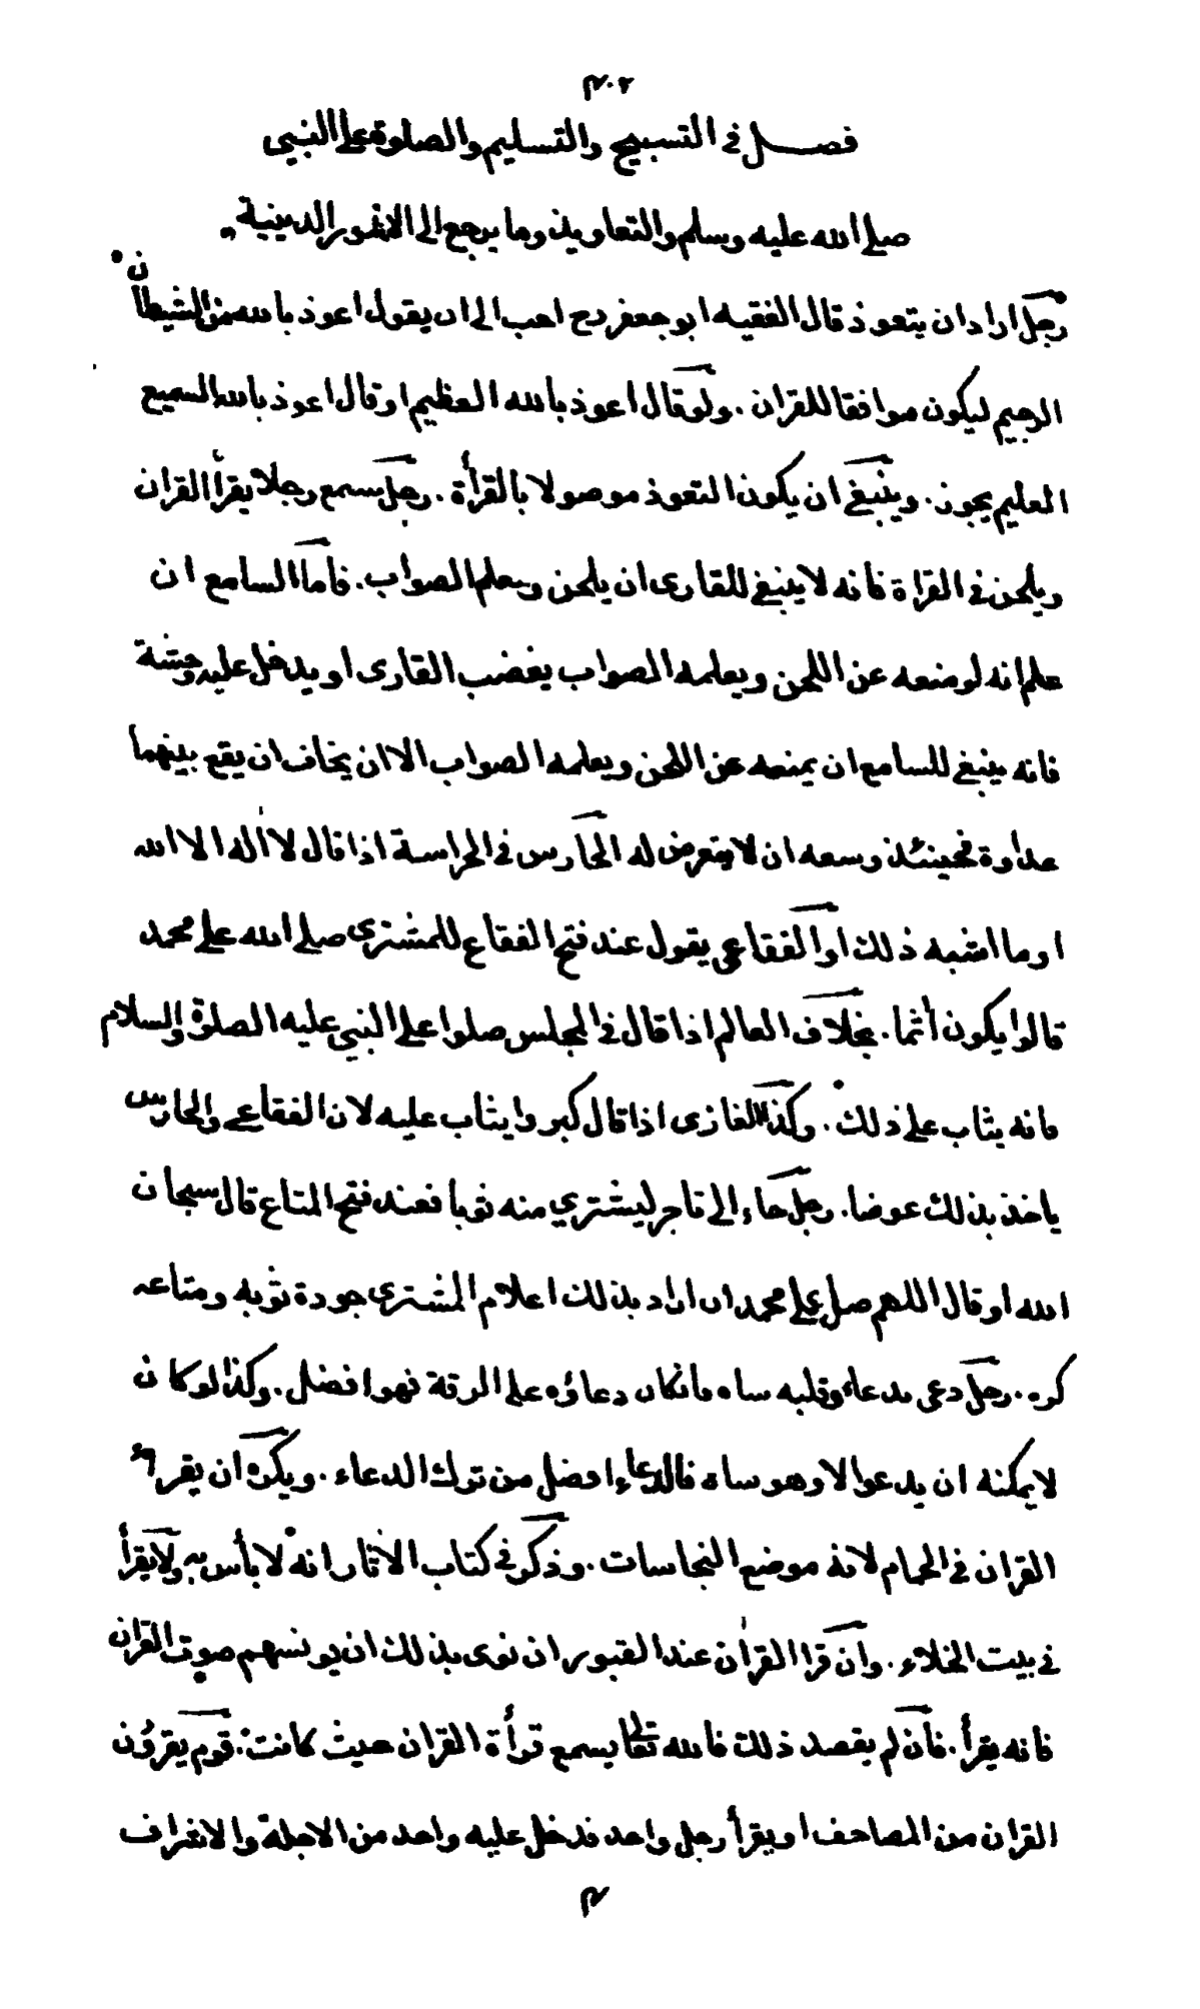 ٤٠٢
فصل في التسبيح والتسليم والصلوة على النبي
صلى الله عليه وسلم والتعاويذ وما يرجع الى الامور الدينية
رجل اراد ان يتعوذ قال الفقيه ابو جعفر رح احب الى ان يقول اعوذ بالله من الشيطان
الرجيم ليكون موافقا للقران . ولو قال اعوذ بالله العظيم او قال اعوذ بالله السميع
العليم يجوز . وينبغى ان يكون التعوذ موصولا بالقرأة . رجل سمع رجلا يقرأ القران
ويلحن في القراة فانه لا ينبغى للقارى ان يلحن ويعلم الصواب . فاما السامع ان
علم انه لو منعه عن اللحن ويعلمه الصواب يغضب القارى او يدخل عليه وحشة
فانه ينبغى للسامع ان يمنعه عن اللحن ويعلمه الصواب الا ان يخاف ان يقع بينهما
عداوة فحينئذ وسعه ان لا يتعرض له الحارس في الحراسة اذا قال لا اله الا الله
او ما اشبه ذلك او الفقاعى يقول عند فتح الفقاع للمشترى صلى الله على محمد
قالوا يكون أثما . بخلاف العالم اذا قال في المجلس صلوا على النبي عليه الصلوة والسلام
فانه يثاب على ذلك . وكذا الغازى اذا قال كبروا يثاب عليه لان الفقاعى والحارس
ياخذ بذلك عوضا . رجل جاء الى تاجر ليشتري منه ثوبا فعند فتح المتاع قال سبحان
الله او قال اللهم صل على محمد ان اراد بذلك اعلام المشترى جودة ثوبه ومتاعه
كره . رجل دعى بدعاء وقلبه ساه فان كان دعاؤه على الرقة فهو افضل . وكذا لو كان
لا يمكنه ان يدعو الا وهو ساه فالدعاء افضل من ترك الدعاء . ويكره ان يقرء
القران في الحمام لانه موضع النجاسات . وذكر في كتاب الاثار انه لا بأس به ولا يقرأ
في بيت الخلاء . وان قرا القران عند القبور ان نوى بذلك ان يونسهم صوت القران
فانه يقرأ . فان لم يقصد ذلك فالله تعالى يسمع قرأة القران حيث كانت . قوم يقرؤن
القران من المصاحف او يقرأ رجل واحد فدخل عليه واحد من الاجلة والاشراف